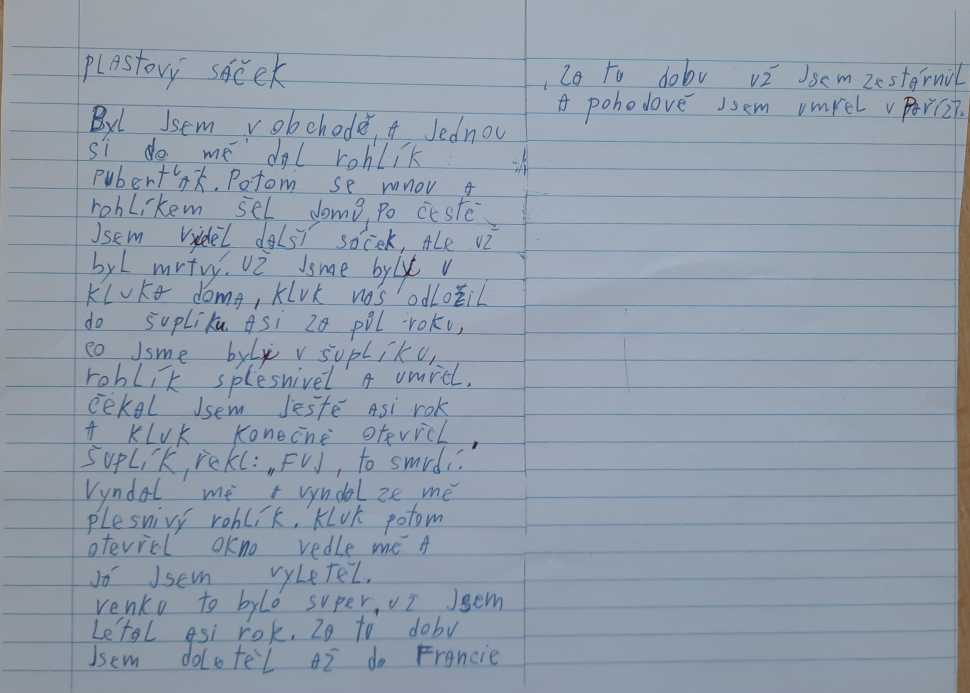 PLASTOVÝ SÁČEK
Byl jsem v obchodě, a jednou
si do mě dal rohlík
puberťák. Potom se mnou a
rohlíkem šel domů, po čestě
jsem vyděl další sáček, ale už
byl mrtvý. Už jsme byly v
kluka doma, kluk nás odložil
do šuplíku. Asi za půl roku,
co jsme byly v šuplíku,
rohlík splesnivěl a umřel.
čekal jsem ještě asi rok
a kluk konečně otevřel
šuplík, řekl: „FUJ, to smrdí."
Vyndal mě a vyndal ze mě
plesnivý rohlík. Kluk potom
otevřel okno vedle mě a
já jsem vyletěl.
venku to bylo super, už jsem
létal asi rok. Za tu dobu
jsem doletěl až do Francie
, za tu dobu už jsem zestárnul
a pohodově jsem umřel v Paříži.